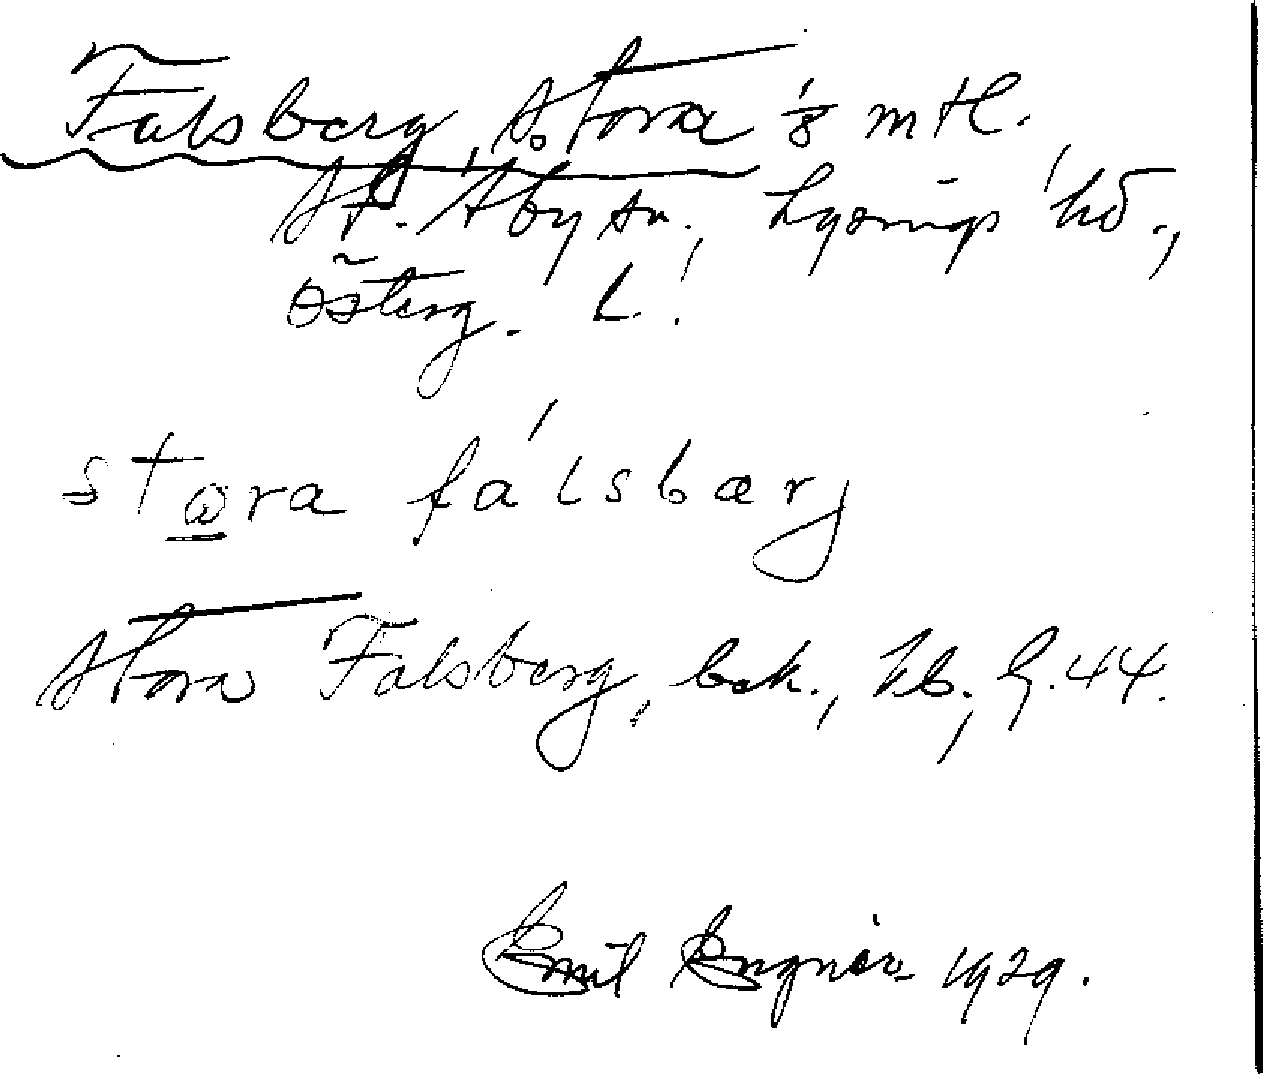 Falsberg, Stora 1/8 mtl.
St. Åby sn., Lysings hd.,
Österg. L.
stωra fálsbærj
Stora Falsberg, bek., hb.,
Emil Engnér 1929.